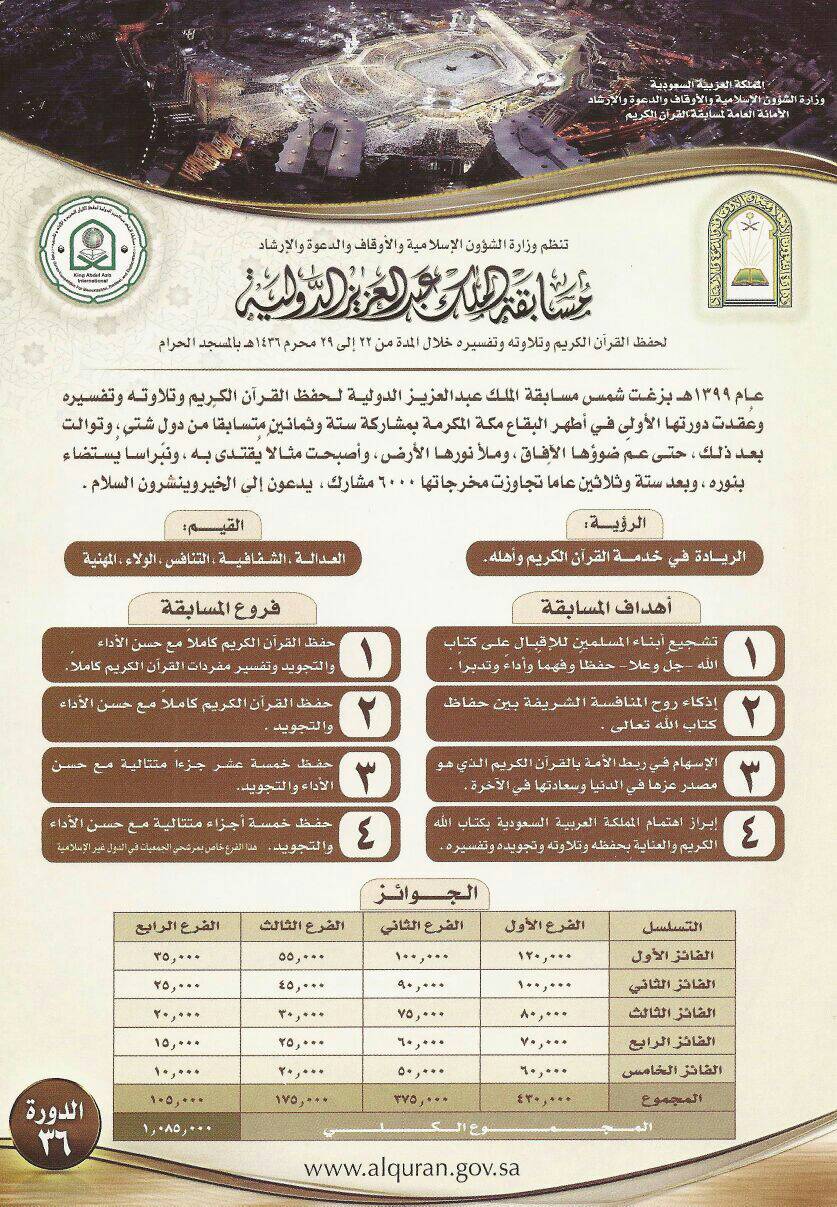 المملكة العربية السعودية
وزارة الشؤون الإسلامية والأوقاف والدعوة والإرشاد
الأمانة العامة لمسابقة القرآن الكريم
King Abdul Aziz
International
تنظم وزارة الشؤون الإسلامية والأوقاف والدعوة والإرشاد
مسابقة الملك عبدالعزيز الدولية
لحفظ القرآن الكريم وتلاوته وتفسيره خلال المدة من ٢٢ إلى ٢٩ محرم ١٤٣٦هـ بالمسجد الحرام
عـام ١٣٩٩هـ بزغـت شمس مسابقة الملك عبدالعزيز الدولية لـحفظ القرآن الكريم وتلاوته وتفسيره
وعُقدت دورتها الأولى في أطهر البقاع مكة المكرمة بمشاركة ستة وثمانين متسابقا من دول شتى، وتوالت
بعد ذلك، حتى عم ضوؤها الآفاق، وملأ نورها الأرض، وأصبحت مثالا يُقتدى به، ونبراسا يُستضاء
بنوره، وبعد ستة وثلاثين عاما تجاوزت مخرجاتها ٦٠٠٠ مشارك، يدعون إلى الخير وينشرون السلام.
الرؤية:
الريادة في خدمة القرآن الكريم وأهله.
القيم:
العدالة، الشفافية، التنافس، الولاء، المهنية
أهداف المسابقة
١
تشجيع أبناء المسلمين للإقبال على كتاب
الله -جل وعلا- حفظا وفهما وأداء وتدبرا.
٢
إذكاء روح المنافسة الشريفة بين حفاظ
كتاب الله تعالى.
٣
الإسهام في ربط الأمة بالقرآن الكريم الذي هو
مصدر عزها في الدنيا وسعادتها في الآخرة.
٤
إبراز اهتمام المملكة العربية السعودية بكتاب الله
الكريم والعناية بحفظه وتلاوته وتجويده وتفسيره.
فروع المسابقة
١
حفظ القرآن الكريم كاملاً مع حسن الأداء
والتجويد وتفسير مفردات القرآن الكريم كاملاً.
٢
حفظ القرآن الكريم كاملاً مع حسن الأداء
والتجويد.
٣
حفظ خمسة عشر جزءاً متتالية مع حسن
الأداء والتجويد.
٤
حفظ خمسة أجزاء متتالية مع حسن الأداء
والتجويد. هذا الفرع خاص بمرشحي الجمعيات في الدول غير الإسلامية
الجـوائـز
التسلسل الفرع الأول الفرع الثاني الفرع الثالث الفرع الرابع
الفائز الأول ١٢٠,٠٠٠ ١٠٠,٠٠٠ ٥٥,٠٠٠ ٣٥,٠٠٠
الفائز الثاني ١٠٠,٠٠٠ ٩٠,٠٠٠ ٤٥,٠٠٠ ٢٥,٠٠٠
الفائز الثالث ٨٠,٠٠٠ ٧٥,٠٠٠ ٣٠,٠٠٠ ٢٠,٠٠٠
الفائز الرابع ٧٠,٠٠٠ ٦٠,٠٠٠ ٢٥,٠٠٠ ١٥,٠٠٠
الفائز الخامس ٦٠,٠٠٠ ٥٠,٠٠٠ ٢٠,٠٠٠ ١٠,٠٠٠
المجموع ٤٣٠,٠٠٠ ٣٧٥,٠٠٠ ١٧٥,٠٠٠ ١٠٥,٠٠٠
المـجـمـوع الـكـلـي ١,٠٨٥,٠٠٠
الدورة
٣٦
www.alquran.gov.sa